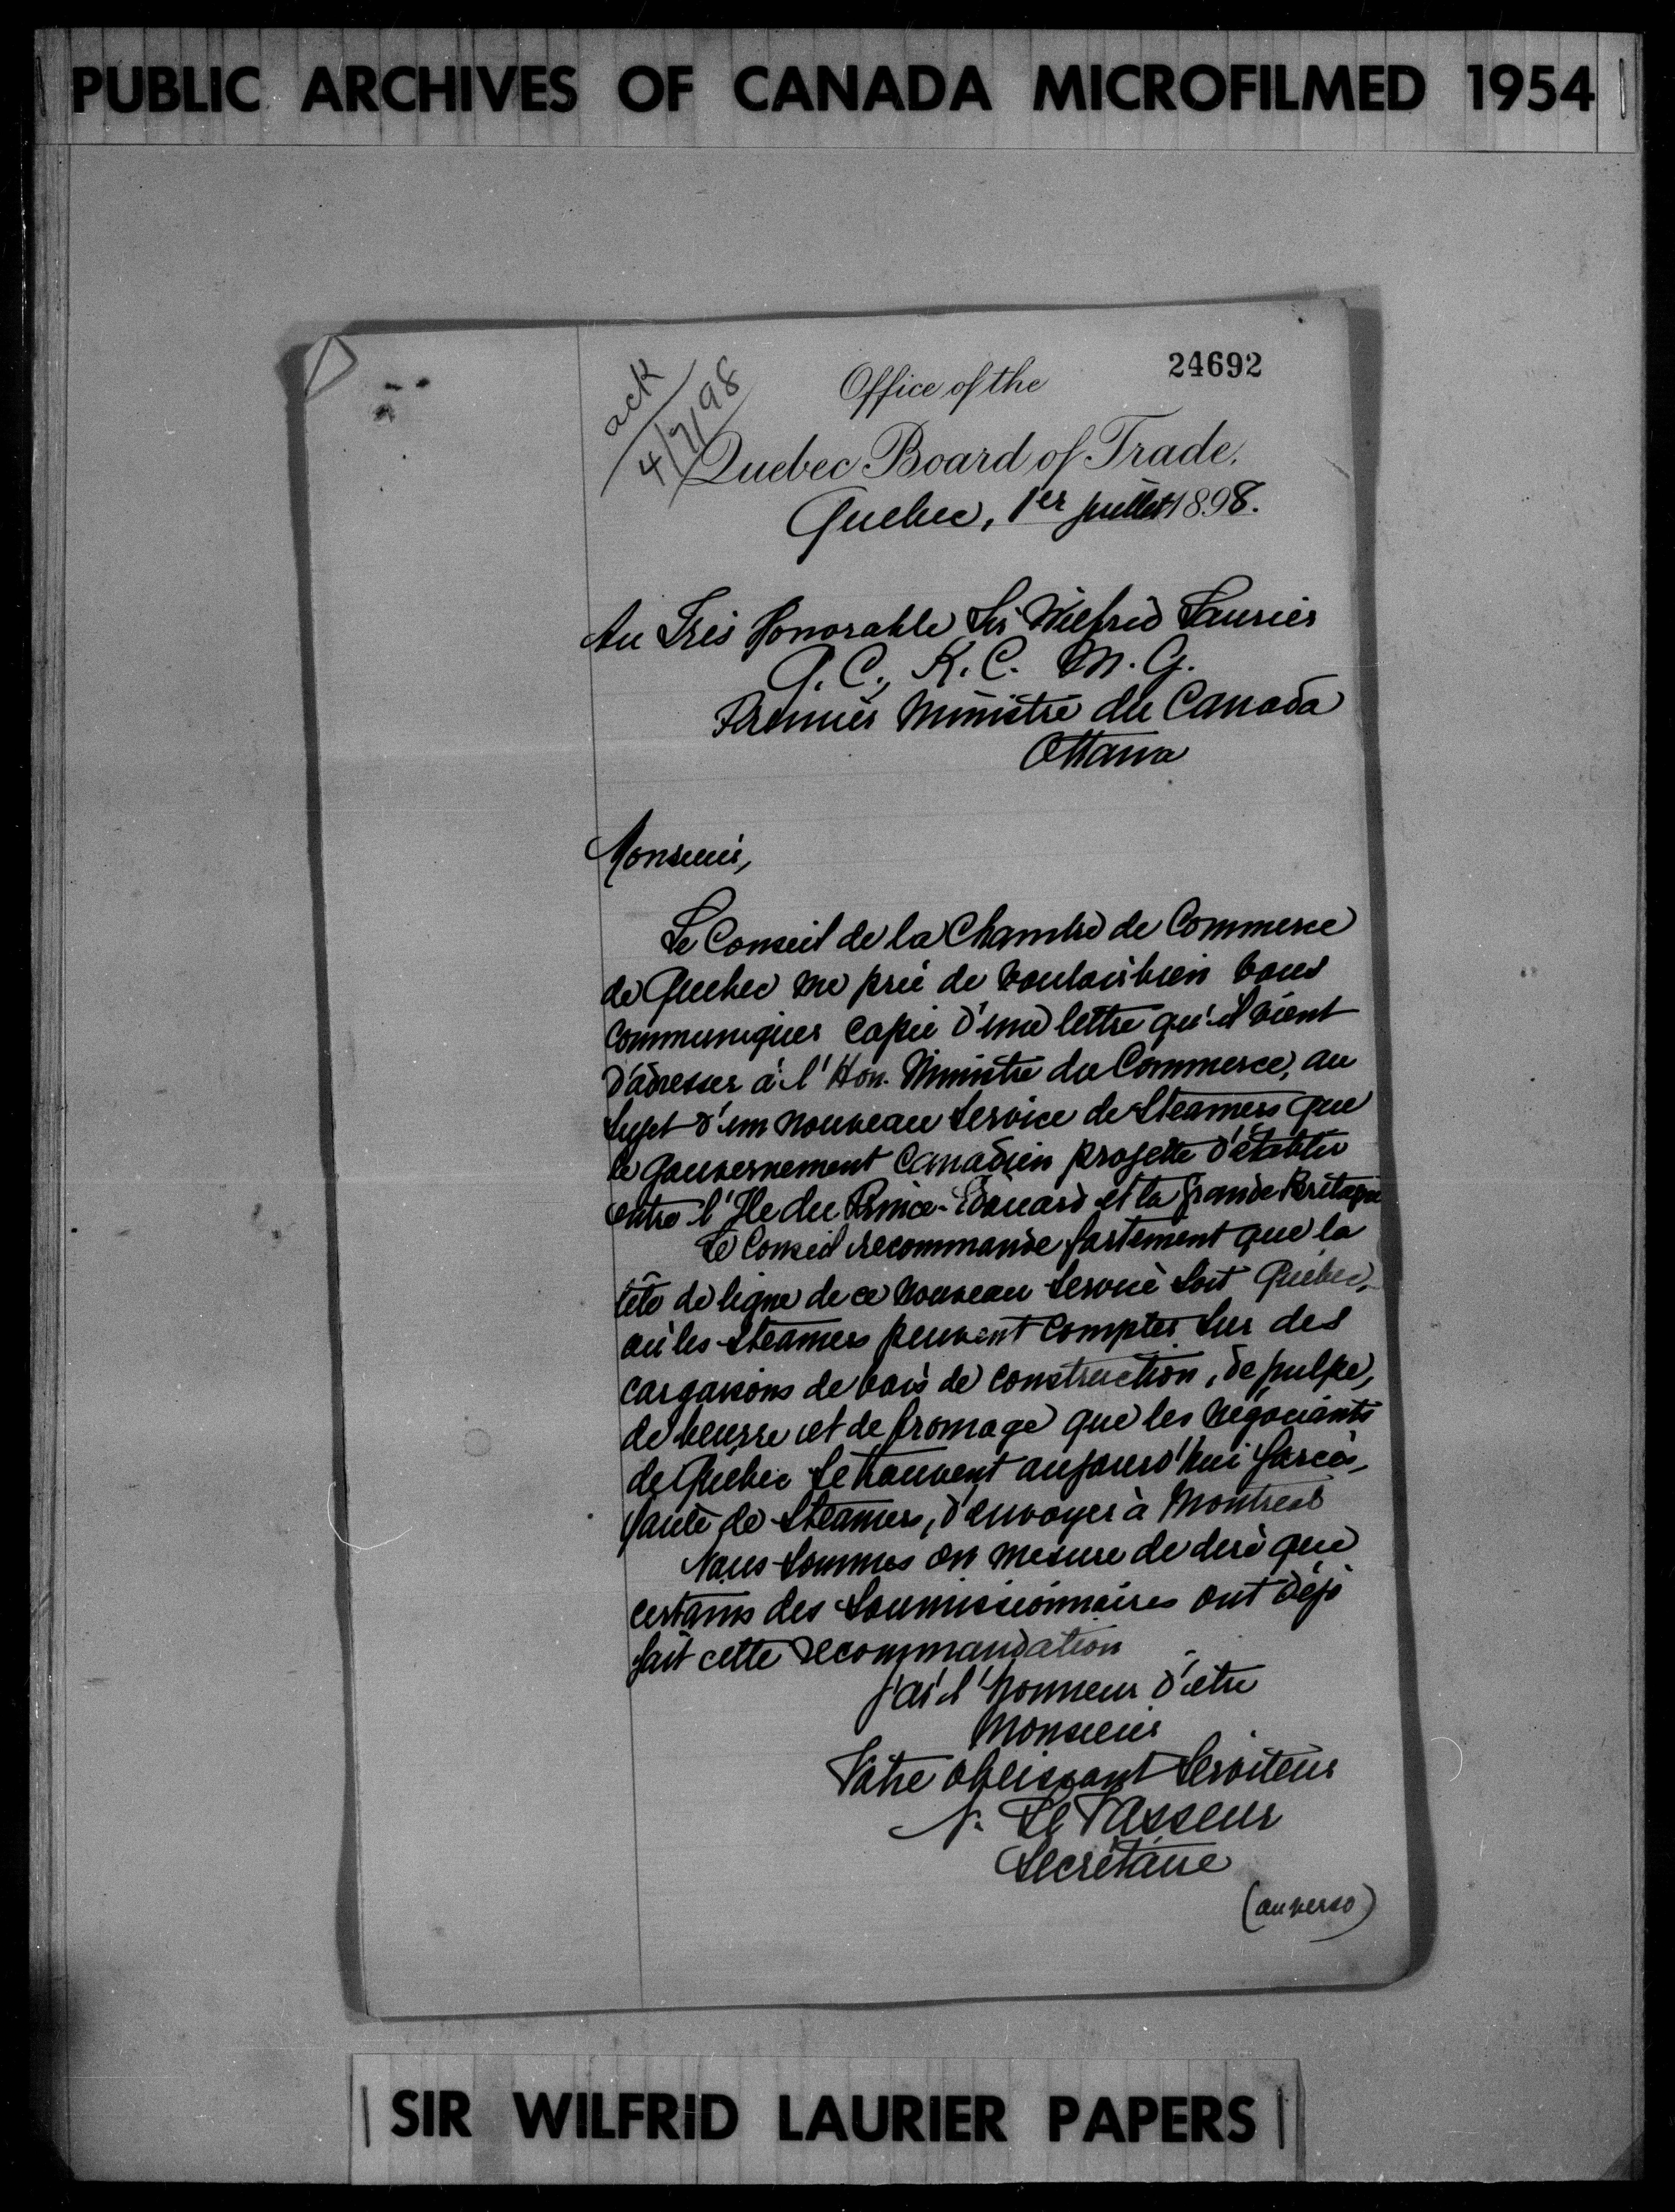 PUBLIC ARCHIVES OF CANADA MICROFILMED 1954
24692
ack
4/7/98
Office of the
Quebec Board of Trade.
Quebec, 1er juillet 1898.
Au Très Honorable Sir Wilfrid Laurier
P.C., K.C.M.G.
Premier Ministre du Canada
Ottawa
Monsieur,
Le Conseil de la Chambre de Commerce
de Quebec me prie de vouloir bien vous
communiquer copie d'une lettre qu'il vient
d'adresser à l'Hon. Ministre du Commerce, au
sujet d'un nouveau service de steamers que
le gouvernement Canadien projette d'établir
entre l'Ile du Prince-Edouard et la Grande Bretagne
Le Conseil recommande fortement que la
tête de ligne de ce nouveau service soit Québec,
où les steamers peuvent compter sur des
cargaisons de bois de construction, de pulpe,
de beurre et de fromage que les négociants
de Québec se trouvent aujourd'hui forcés,
faute de steamers, d'envoyer à Montreal
Nous sommes en mesure de dire que
certains des soumissionnaires ont déjà
fait cette recommandation
J'ai l'honneur d'être
Monsieur
Votre obéissant serviteur
N. LeVasseur
Secrétaire
(au verso)
SIR WILFRID LAURIER PAPERS